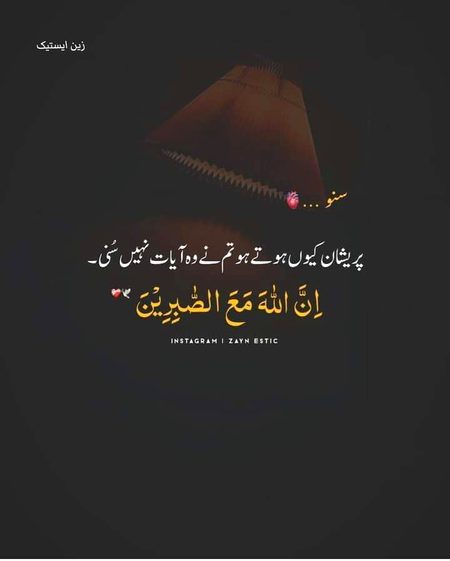 زین ایستیک
سنو ...🫀
پریشان کیوں ہوتے ہو تم نے وہ آیات نہیں سُنی۔
اِنَّ اللّٰهَ مَعَ الصّٰبِرِیْنَ 🕊❤️‍🩹
INSTAGRAM | ZAYN ESTIC